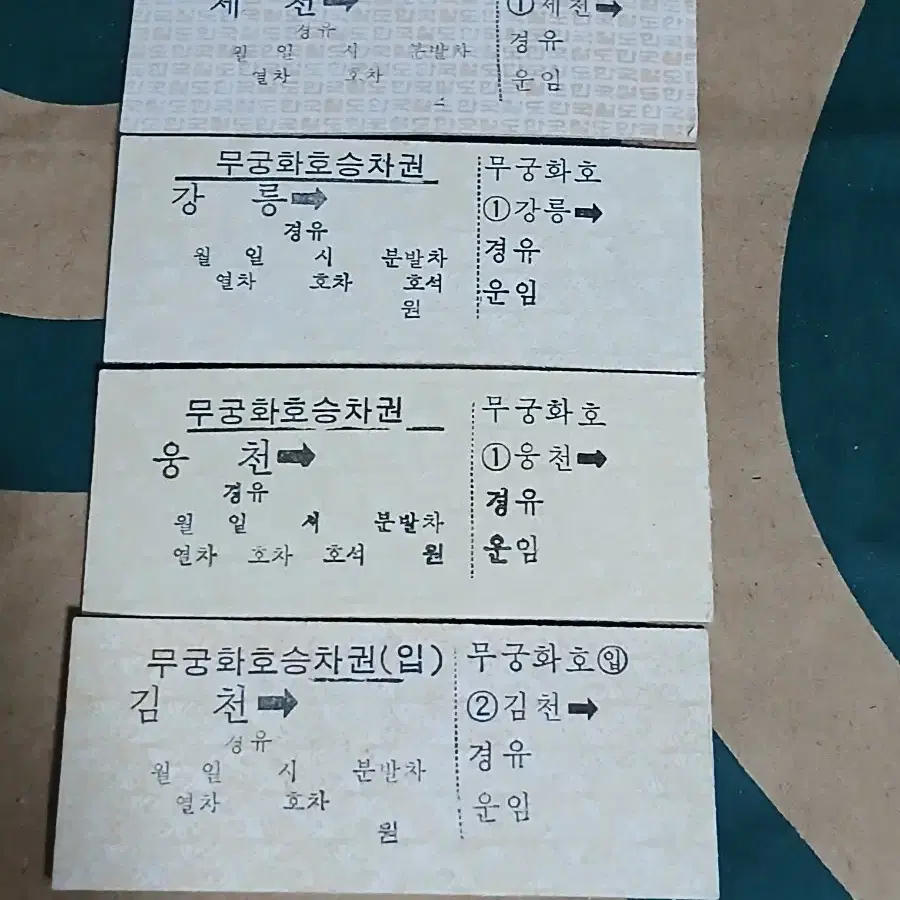 제 천➡
경유
월 일 시 분발차
열차 호차
①제천➡
경유
운임
무궁화호승차권
강 릉➡
경유
월 일 시 분발차
열차 호차 호석
원
무궁화호
①강릉➡
경유
운임
무궁화호승차권
웅 천➡
경유
월 일 시 분발차
열차 호차 호석 원
무궁화호
①웅천➡
경유
운임
무궁화호승차권(입)
김 천➡
경유
월 일 시 분발차
열차 호차
원
무궁화호㉠입
②김천➡
경유
운임